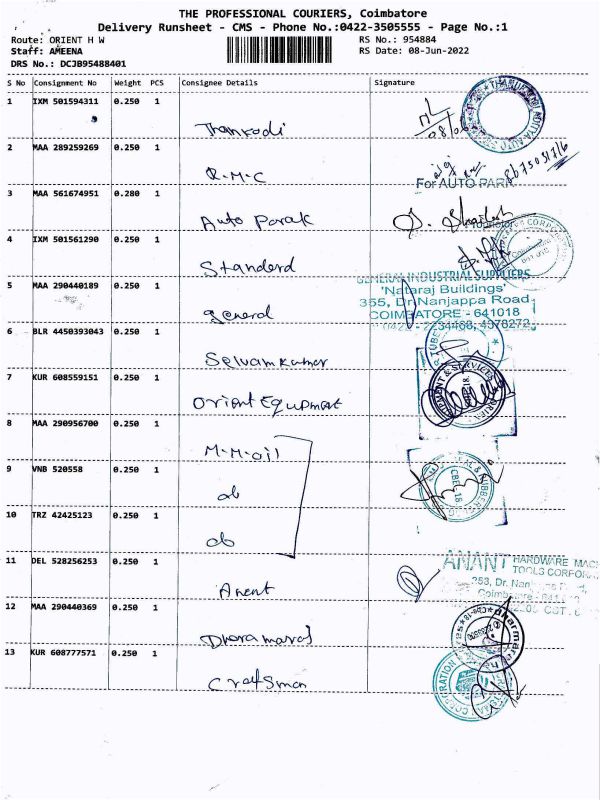 THE PROFESSIONAL COURIERS, Coimbatore
Delivery Runsheet - CMS - Phone No.:0422-3505555 - Page No.:1
Route: ORIENT H W RS No.: 954884
Staff: AMEENA RS Date: 08-Jun-2022
DRS No.: DCJB95488401
S No Consignment No Weight PCS Consignee Details Signature
1 IXM 501594311 0.250 1
2 MAA 289259269 0.250 1 R.M.C
For AUTO PARK
3 MAA 561674951 0.280 1 Auto Parak
4 IXM 501561290 0.250 1 Standerd
GENERAL INDUSTRIAL SUPPLIERS
'Nataraj Buildings'
355, Dr.Nanjappa Road
COIMBATORE - 641018
0422 - 2234468, 4378272
5 MAA 290440189 0.250 1 general
6 BLR 4450393043 0.250 1 Selvamkumar
7 KUR 608559151 0.250 1 Orient Equpment
8 MAA 290956700 0.250 1 M.M.oil
9 VNB 520558 0.250 1 do
10 TRZ 42425123 0.250 1 do
ANANT HARDWARE
TOOLS
253, Dr.
11 DEL 528256253 0.250 1 Anent
12 MAA 290440369 0.250 1
13 KUR 608777571 0.250 1 Craftsman